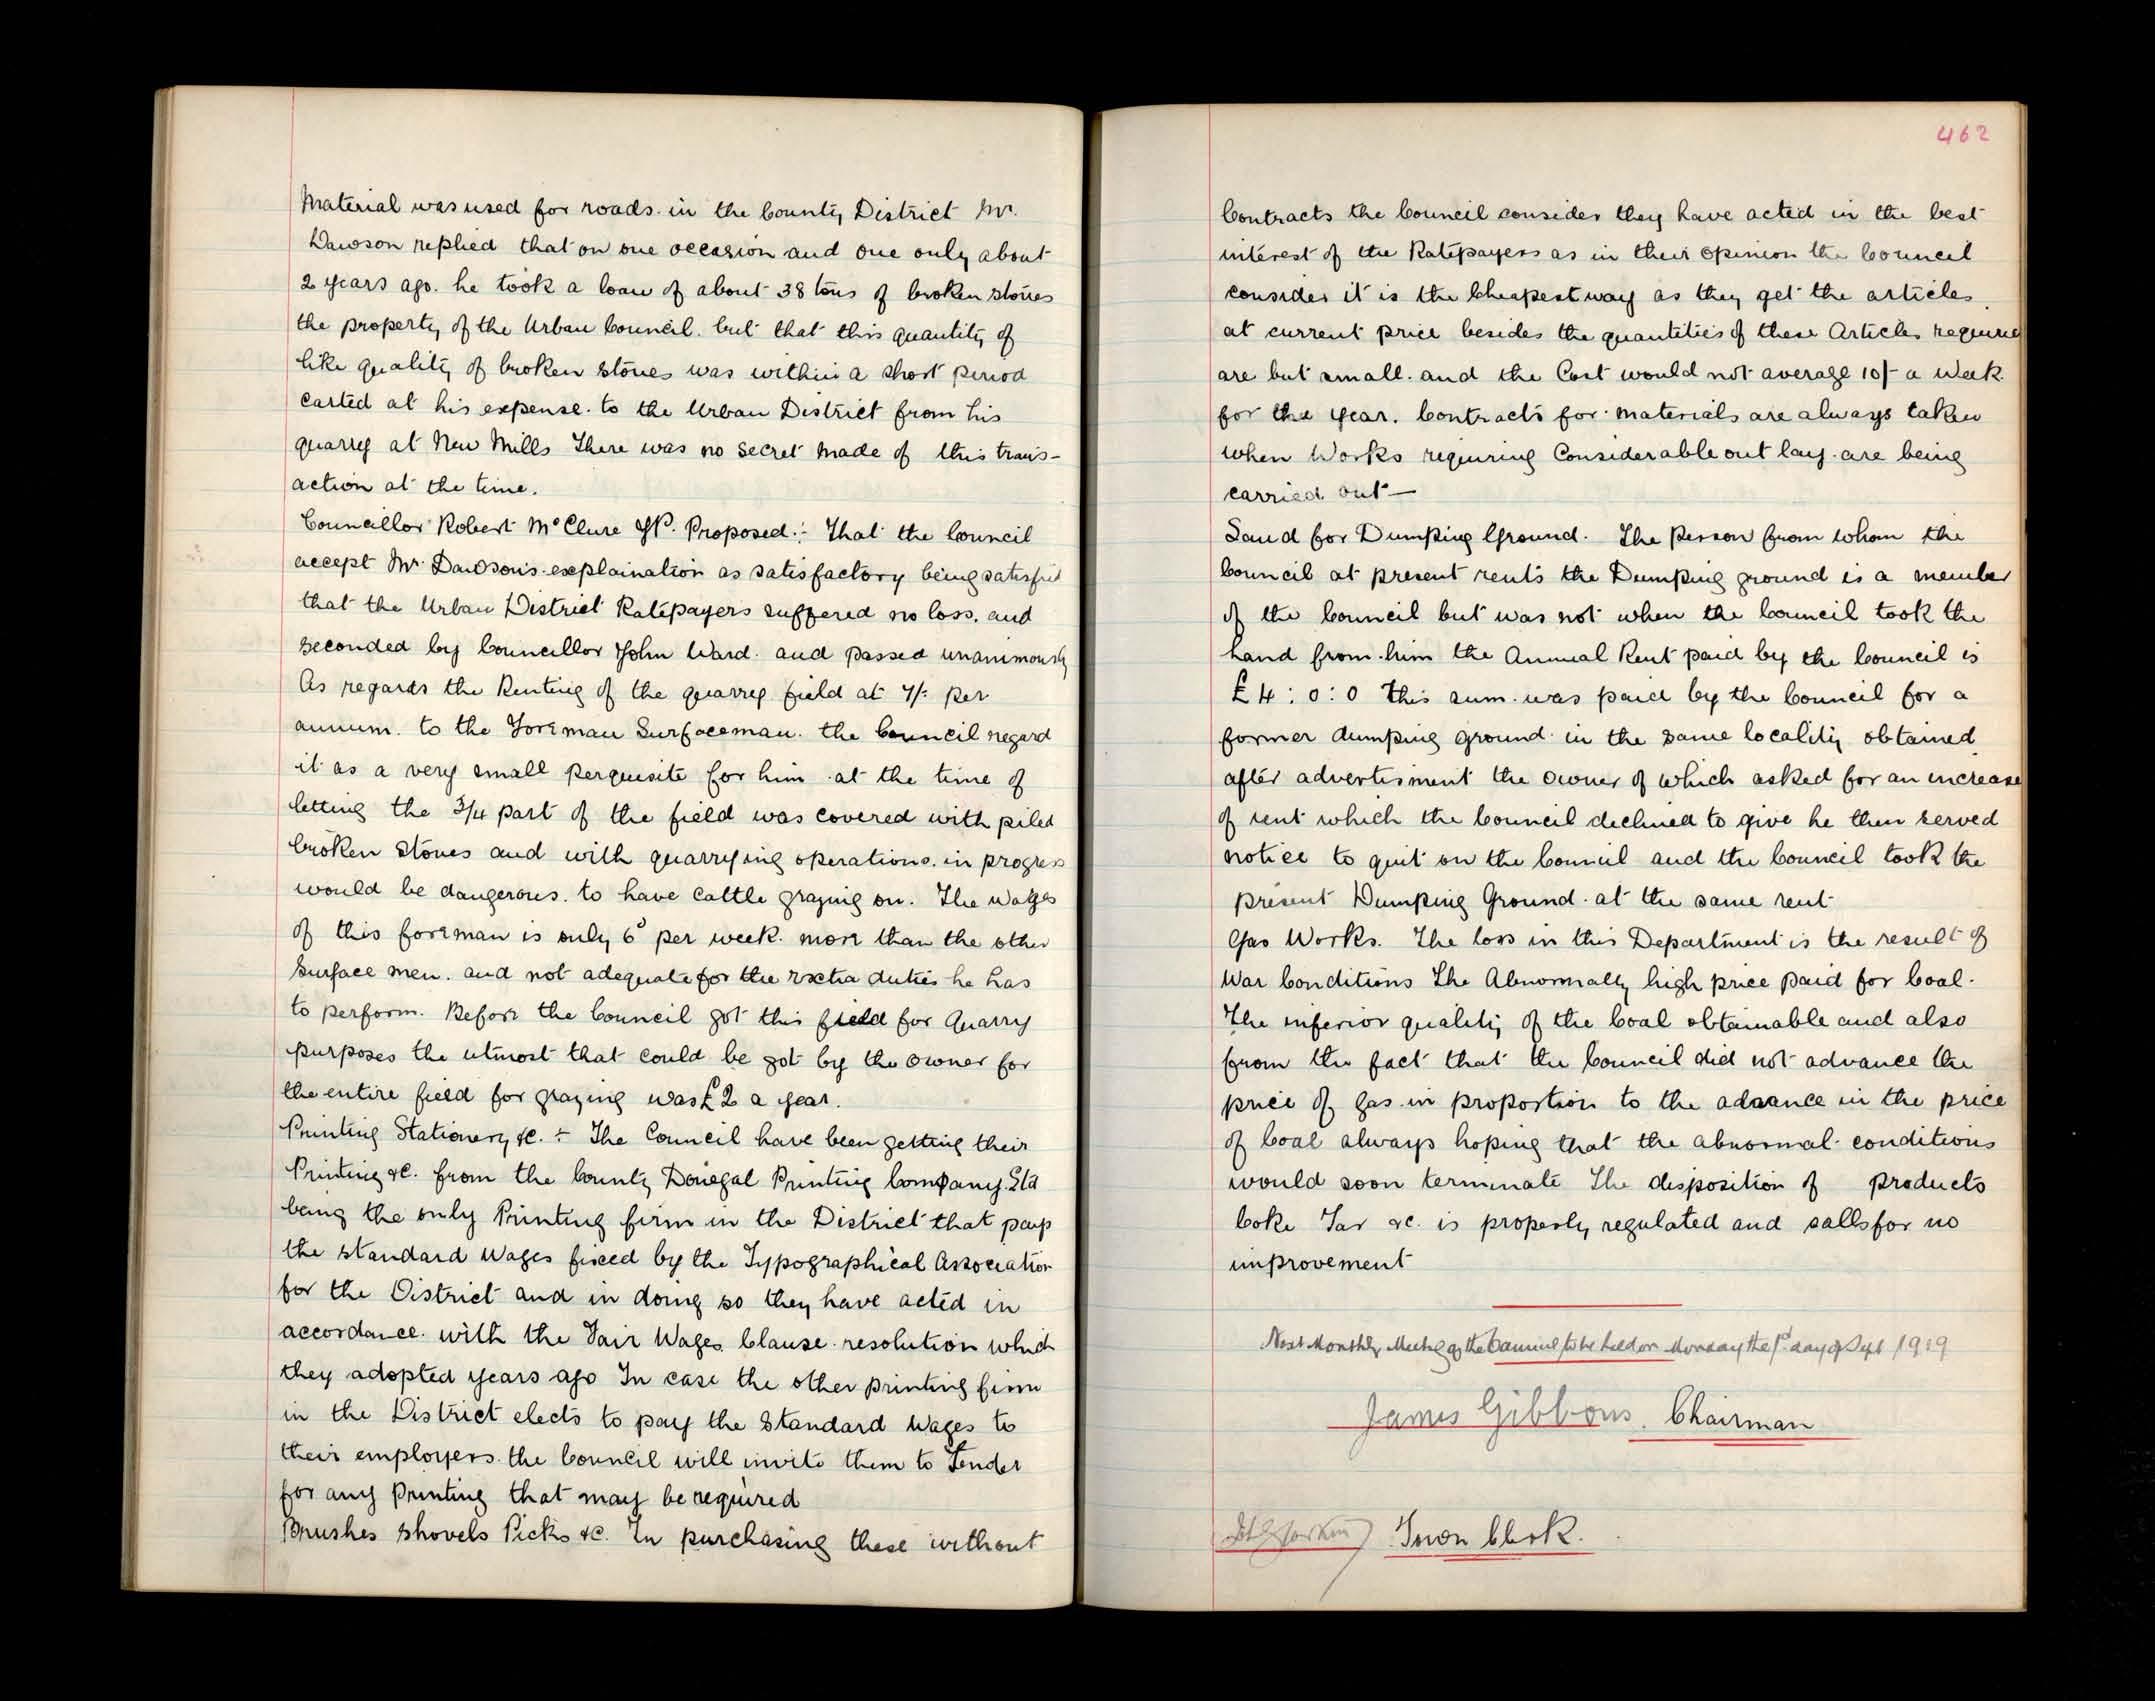 Material was used for roads in the County District Mr.
Dawson replied that on one occasion and one only about
2 years ago. he took a loan of about 38 tons of broken stones
the property of the Urban Council. but that this quantity of
like quality of broken stones was within a short period
carted at his expense. to the Urban District from his
quarry at New Mills There was no secret made of this trans-
action at the time.
Councillor Robert McClure JP. Proposed:- That the Council
accept Mr. Dawson's explaination as satisfactory being satisfied
that the Urban District Ratepayers suffered no loss. and
seconded by Councillor John Ward. and passed unanimously
As regards the Renting of the quarry field at 7/- per
annum. to the Foreman Surfaceman. the Council regard
it as a very small perquisite for him at the time of
letting the 3/4 part of the field was covered with piled
broken stones and with quarrying operations. in progress
would be dangerous. to have cattle grazing on. The wages
of this foreman is only 6s per week. more than the other
Surface men. and not adequate for the extra duties he has
to perform. Before the Council got this field for Quarry
purposes the utmost that could be got by the owner for
the entire field for grazing was £2 a year.
Printing Stationery &C. :- The Council have been getting their
Printing &C. from the County Donegal Printing Company. Ltd
being the only Printing firm in the District that pays
the standard wages fixed by the Typographical Association
for the District and in doing so they have acted in
accordance. with the Fair Wages Clause resolution which
they adopted years ago In case the other printing firm
in the District elects to pay the Standard Wages to
their employers. the Council will invite them to Tender
for any Printing that may be required
Brushes Shovels Picks &C. In purchasing these without
462
Contracts the Council consider they have acted in the best
interest of the Ratepayers as in their opinion the Council
consider it is the Cheapest way as they get the articles
at current price besides the quantities of these Articles require
are but small. and the Cost would not average 10/- a Week.
for the year. Contracts for materials are always taken
when Works requiring Considerable out lay. are being
carried out —
Land for Dumping Ground. The Person from whom the
Council at present rents the Dumping ground is a member
of the Council but was not when the Council took the
land from him the Annual Rent paid by the Council is
£4:0:0 This sum was paid by the Council for a
former dumping ground in the same locality obtained
after advertisment the owner of which asked for an increase
of rent which the Council declined to give he then served
notice to quit on the Council and the Council took the
present Dumping Ground. at the same rent
Gas Works. The loss in this Department is the result of
War Conditions The Abnormally high price paid for Coal.
The inferior quality of the Coal obtainable and also
from the fact that the Council did not advance the
price of gas in proportion to the advance in the price
of Coal always hoping that the abnormal conditions
would soon terminate The disposition of products
Coke Tar &c. is properly regulated and calls for no
improvement
Next Monthly Meeting of the Council to be held on Monday the 1st day of Sept 1919
James Gibbons. Chairman
Town Clerk.